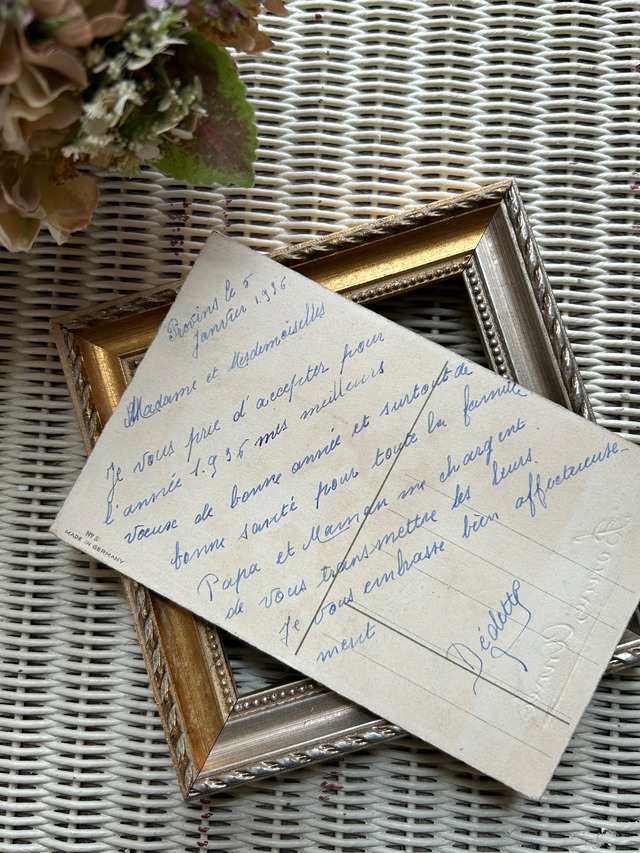 Provins le 5
Janvier 1.936
Madame et Mesdemoiselles
Je vous prie d'accepter pour
l'année 1.936 mes meilleurs
vœux de bonne année et surtout de
bonne santé pour toute la famille
Papa et Maman me chargent
de vous transmettre les leurs.
Je vous embrasse bien affectueuse-
ment
Dédette
No 5
MADE IN GERMANY
Bonne Année